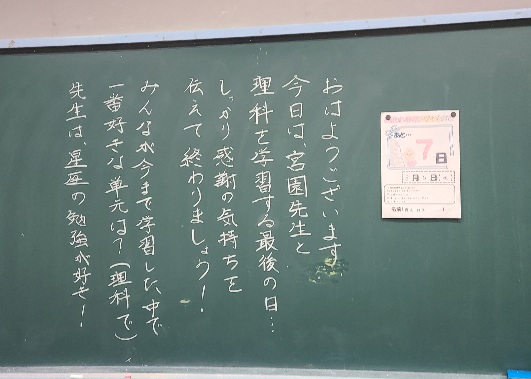 おはようございます
今日は、宮園先生と
理科を学習する最後の日…
しっかり感謝の気持ちを
伝えて終わりましょう！
みんなが今まで学習した中で
一番好きな単元は？（理科で）
先生は、星座の勉強が好き！
あと…
7日